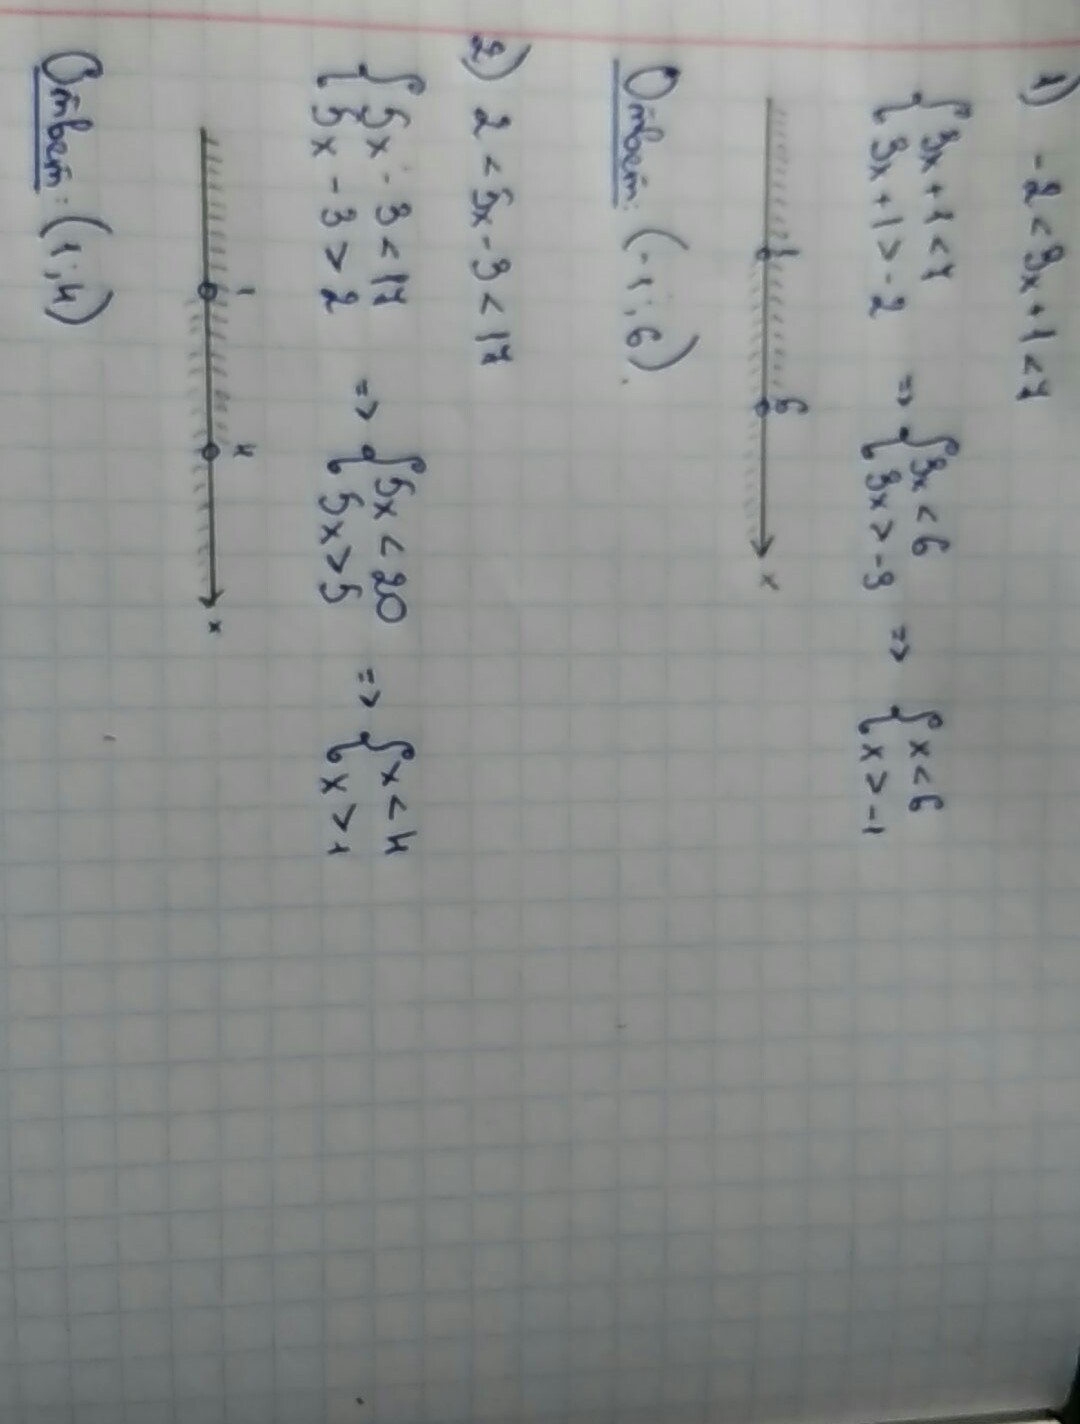 1) -2 < 3x + 1 < 7
{ 3x + 1 < 7 => { 3x < 6 => { x < 6
{ 3x + 1 > -2 { 3x > -3 { x > -1
-1 6 x
Ответ: (-1; 6).
2) 2 < 5x - 3 < 17
{ 5x - 3 < 17 => { 5x < 20 => { x < 4
{ 5x - 3 > 2 { 5x > 5 { x > 1
1 4 x
Ответ: (1; 4)